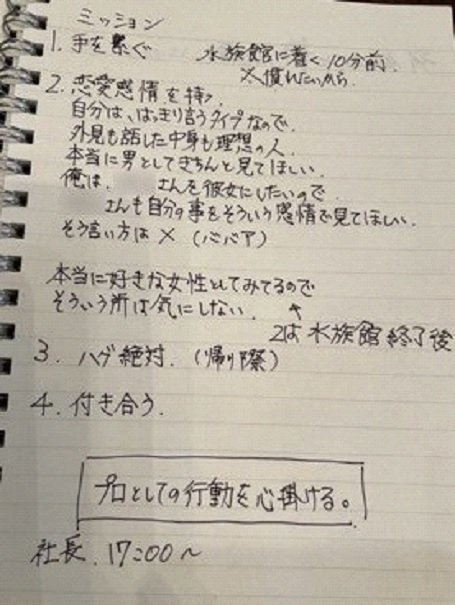 ミッション
1. 手を繋ぐ 水族館に着く10分前.
※慣れたいから.
2. 恋愛感情を持つ
自分は、はっきり言うタイプなので、
外見も話した中身も理想の人.
本当に男としてきちんと見てほしい.
俺は、 さんを彼女にしたいので
さんも自分の事をそういう感情で見てほしい.
そう言い方は × (ババア)
本当に好きな女性としてみてるので
そういう所は気にしない.
2は 水族館終了後
3. ハグ絶対. (帰り際)
4. 付き合う.
プロとしての行動を心掛ける。
社長. 17:00〜